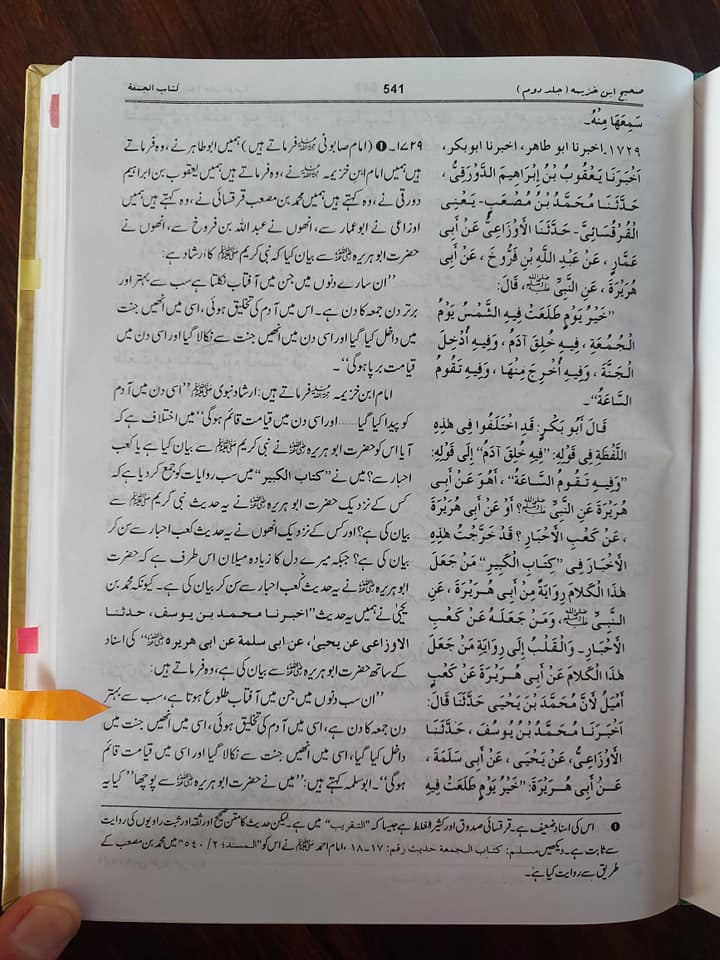 صحیح ابن خزیمہ (جلد دوم) 541 کتاب الجمعة
سَمِعَهَا مِنْهُ۔
١٧٢٩۔ اخبرنا ابو طاهر، اخبرنا ابوبکر،
اَخْبَرَنَا يَعْقُوبُ بْنُ إِبْرَاهِيمَ الدَّوْرَقِيُّ،
حَدَّثَنَا مُحَمَّدُ بْنُ مُصْعَبٍ۔ يَعْنِي
الْقُرْقُسَائِيَّ۔ حَدَّثَنَا الْأَوْزَاعِيُّ عَنْ أَبِي
عَمَّارٍ، عَنْ عَبْدِ اللَّهِ بْنِ فَرُّوخَ، عَنْ أَبِي
هُرَيْرَةَ، عَنِ النَّبِيِّ ﷺ، قَالَ:
”خَيْرُ يَوْمٍ طَلَعَتْ فِيهِ الشَّمْسُ يَوْمُ
الْجُمُعَةِ، فِيهِ خُلِقَ آدَمُ، وَفِيهِ أُدْخِلَ
الْجَنَّةَ، وَفِيهِ أُخْرِجَ مِنْهَا، وَفِيهِ تَقُومُ
السَّاعَةُ“۔
قَالَ أَبُو بَكْرٍ: قَدِ اخْتَلَفُوا فِي هٰذِهِ
اللَّفْظَةِ فِي قَوْلِهِ: ”فِيهِ خُلِقَ آدَمُ“ إِلَى قَوْلِهِ:
”وَفِيهِ تَقُومُ السَّاعَةُ“، أَهُوَ عَنْ أَبِي
هُرَيْرَةَ عَنِ النَّبِيِّ ﷺ؟ أَوْ عَنْ أَبِي هُرَيْرَةَ
، عَنْ كَعْبِ الْأَحْبَارِ؟ قَدْ خَرَّجْتُ هٰذِهِ
الْأَخْبَارَ فِي ”كِتَابِ الْكَبِيرِ“ مَنْ جَعَلَ
هٰذَا الْكَلَامَ رِوَايَةً مِنْ أَبِي هُرَيْرَةَ، عَنِ
النَّبِيِّ ﷺ، وَمَنْ جَعَلَهُ عَنْ كَعْبِ
الْأَحْبَارِ۔ وَالْقَلْبُ إِلَى رِوَايَةِ مَنْ جَعَلَ
هٰذَا الْكَلَامَ عَنْ أَبِي هُرَيْرَةَ عَنْ كَعْبٍ
أَمْيَلُ لأَنَّ مُحَمَّدَ بْنَ يَحْيَى حَدَّثَنَا قَالَ:
اَخْبَرَنَا مُحَمَّدُ بْنُ يُوسُفَ، حَدَّثَنَا
الْأَوْزَاعِيُّ، عَنْ يَحْيَى، عَنْ أَبِي سَلَمَةَ،
عَنْ أَبِي هُرَيْرَةَ: ”خَيْرُ يَوْمٍ طَلَعَتْ فِيهِ
۱۷۲۹۔ ❶ (امام صابونی رحمہ اللہ فرماتے ہیں) ہمیں ابوطاہر نے، وہ فرماتے
ہیں ہمیں امام ابن خزیمہ رحمہ اللہ نے، وہ فرماتے ہیں ہمیں یعقوب بن ابراہیم
دورقی نے، وہ کہتے ہیں ہمیں محمد بن مصعب قرقسائی نے، وہ کہتے ہیں ہمیں
اوزاعی نے ابوعمار سے، انھوں نے عبداللہ بن فروخ سے، انھوں نے
حضرت ابوہریرہ رضی اللہ عنہ سے بیان کیا کہ نبی کریم ﷺ کا ارشاد ہے:
”ان سارے دنوں میں جن میں آفتاب نکلتا ہے سب سے بہتر اور
برتر دن جمعہ کا دن ہے۔ اس میں آدم کی تخلیق ہوئی، اسی میں انھیں جنت
میں داخل کیا گیا اور اسی دن میں انھیں جنت سے نکالا گیا اور اسی دن میں
قیامت برپا ہوگی“۔
امام ابن خزیمہ رحمہ اللہ فرماتے ہیں: ارشاد نبوی ﷺ ”اسی دن میں آدم
کو پیدا کیا گیا......اور اسی دن میں قیامت قائم ہوگی“ میں اختلاف ہے کہ
آیا اس کو حضرت ابوہریرہ رضی اللہ عنہ نے نبی کریم ﷺ سے بیان کیا ہے یا کعب
احبار سے؟ میں نے ”کتاب الکبیر“ میں سب روایات کو جمع کر دیا ہے کہ
کس کے نزدیک حضرت ابوہریرہ رضی اللہ عنہ نے یہ حدیث نبی کریم ﷺ سے
بیان کی ہے؟ اور کس کے نزدیک انھوں نے یہ حدیث کعب احبار سے سن کر
بیان کی ہے؟ جبکہ میرے دل کا زیادہ میلان اس طرف ہے کہ حضرت
ابوہریرہ رضی اللہ عنہ نے یہ حدیث کعب احبار سے سن کر بیان کی ہے۔ کیونکہ محمد بن
یحیٰ نے ہمیں یہ حدیث ”اخبرنا محمد بن یوسف، حدثنا
الاوزاعی عن یحییٰ، عن ابی سلمۃ عن ابی ھریرہ رضی اللہ عنہ“ کی اسناد
کے ساتھ حضرت ابوہریرہ رضی اللہ عنہ سے بیان کی ہے، وہ فرماتے ہیں:
”ان سب دنوں میں جن میں آفتاب طلوع ہوتا ہے، سب سے بہتر
دن جمعہ کا دن ہے، اسی میں آدم کی تخلیق ہوئی، اسی میں انھیں جنت میں
داخل کیا گیا، اسی میں انھیں جنت سے نکالا گیا اور اسی میں قیامت قائم
ہوگی“۔ ابوسلمہ کہتے ہیں: ”میں نے حضرت ابوہریرہ رضی اللہ عنہ سے پوچھا“ کیا یہ
❶ اس کی اسناد ضعیف ہے۔ قرقسائی صدوق اور کثیر الغلط ہے جیسا کہ ”التقریب“ میں ہے۔ لیکن حدیث کا متن صحیح اور ثقہ اور ثبت راویوں کی روایت
سے ثابت ہے۔ دیکھیں مسلم: کتاب الجمعة حدیث رقم: ١٧۔ ١٨، امام احمد نے اس کو ”المسند: ٢/ ٥٤٠“ میں محمد بن مصعب کے
طریق سے روایت کیا ہے۔